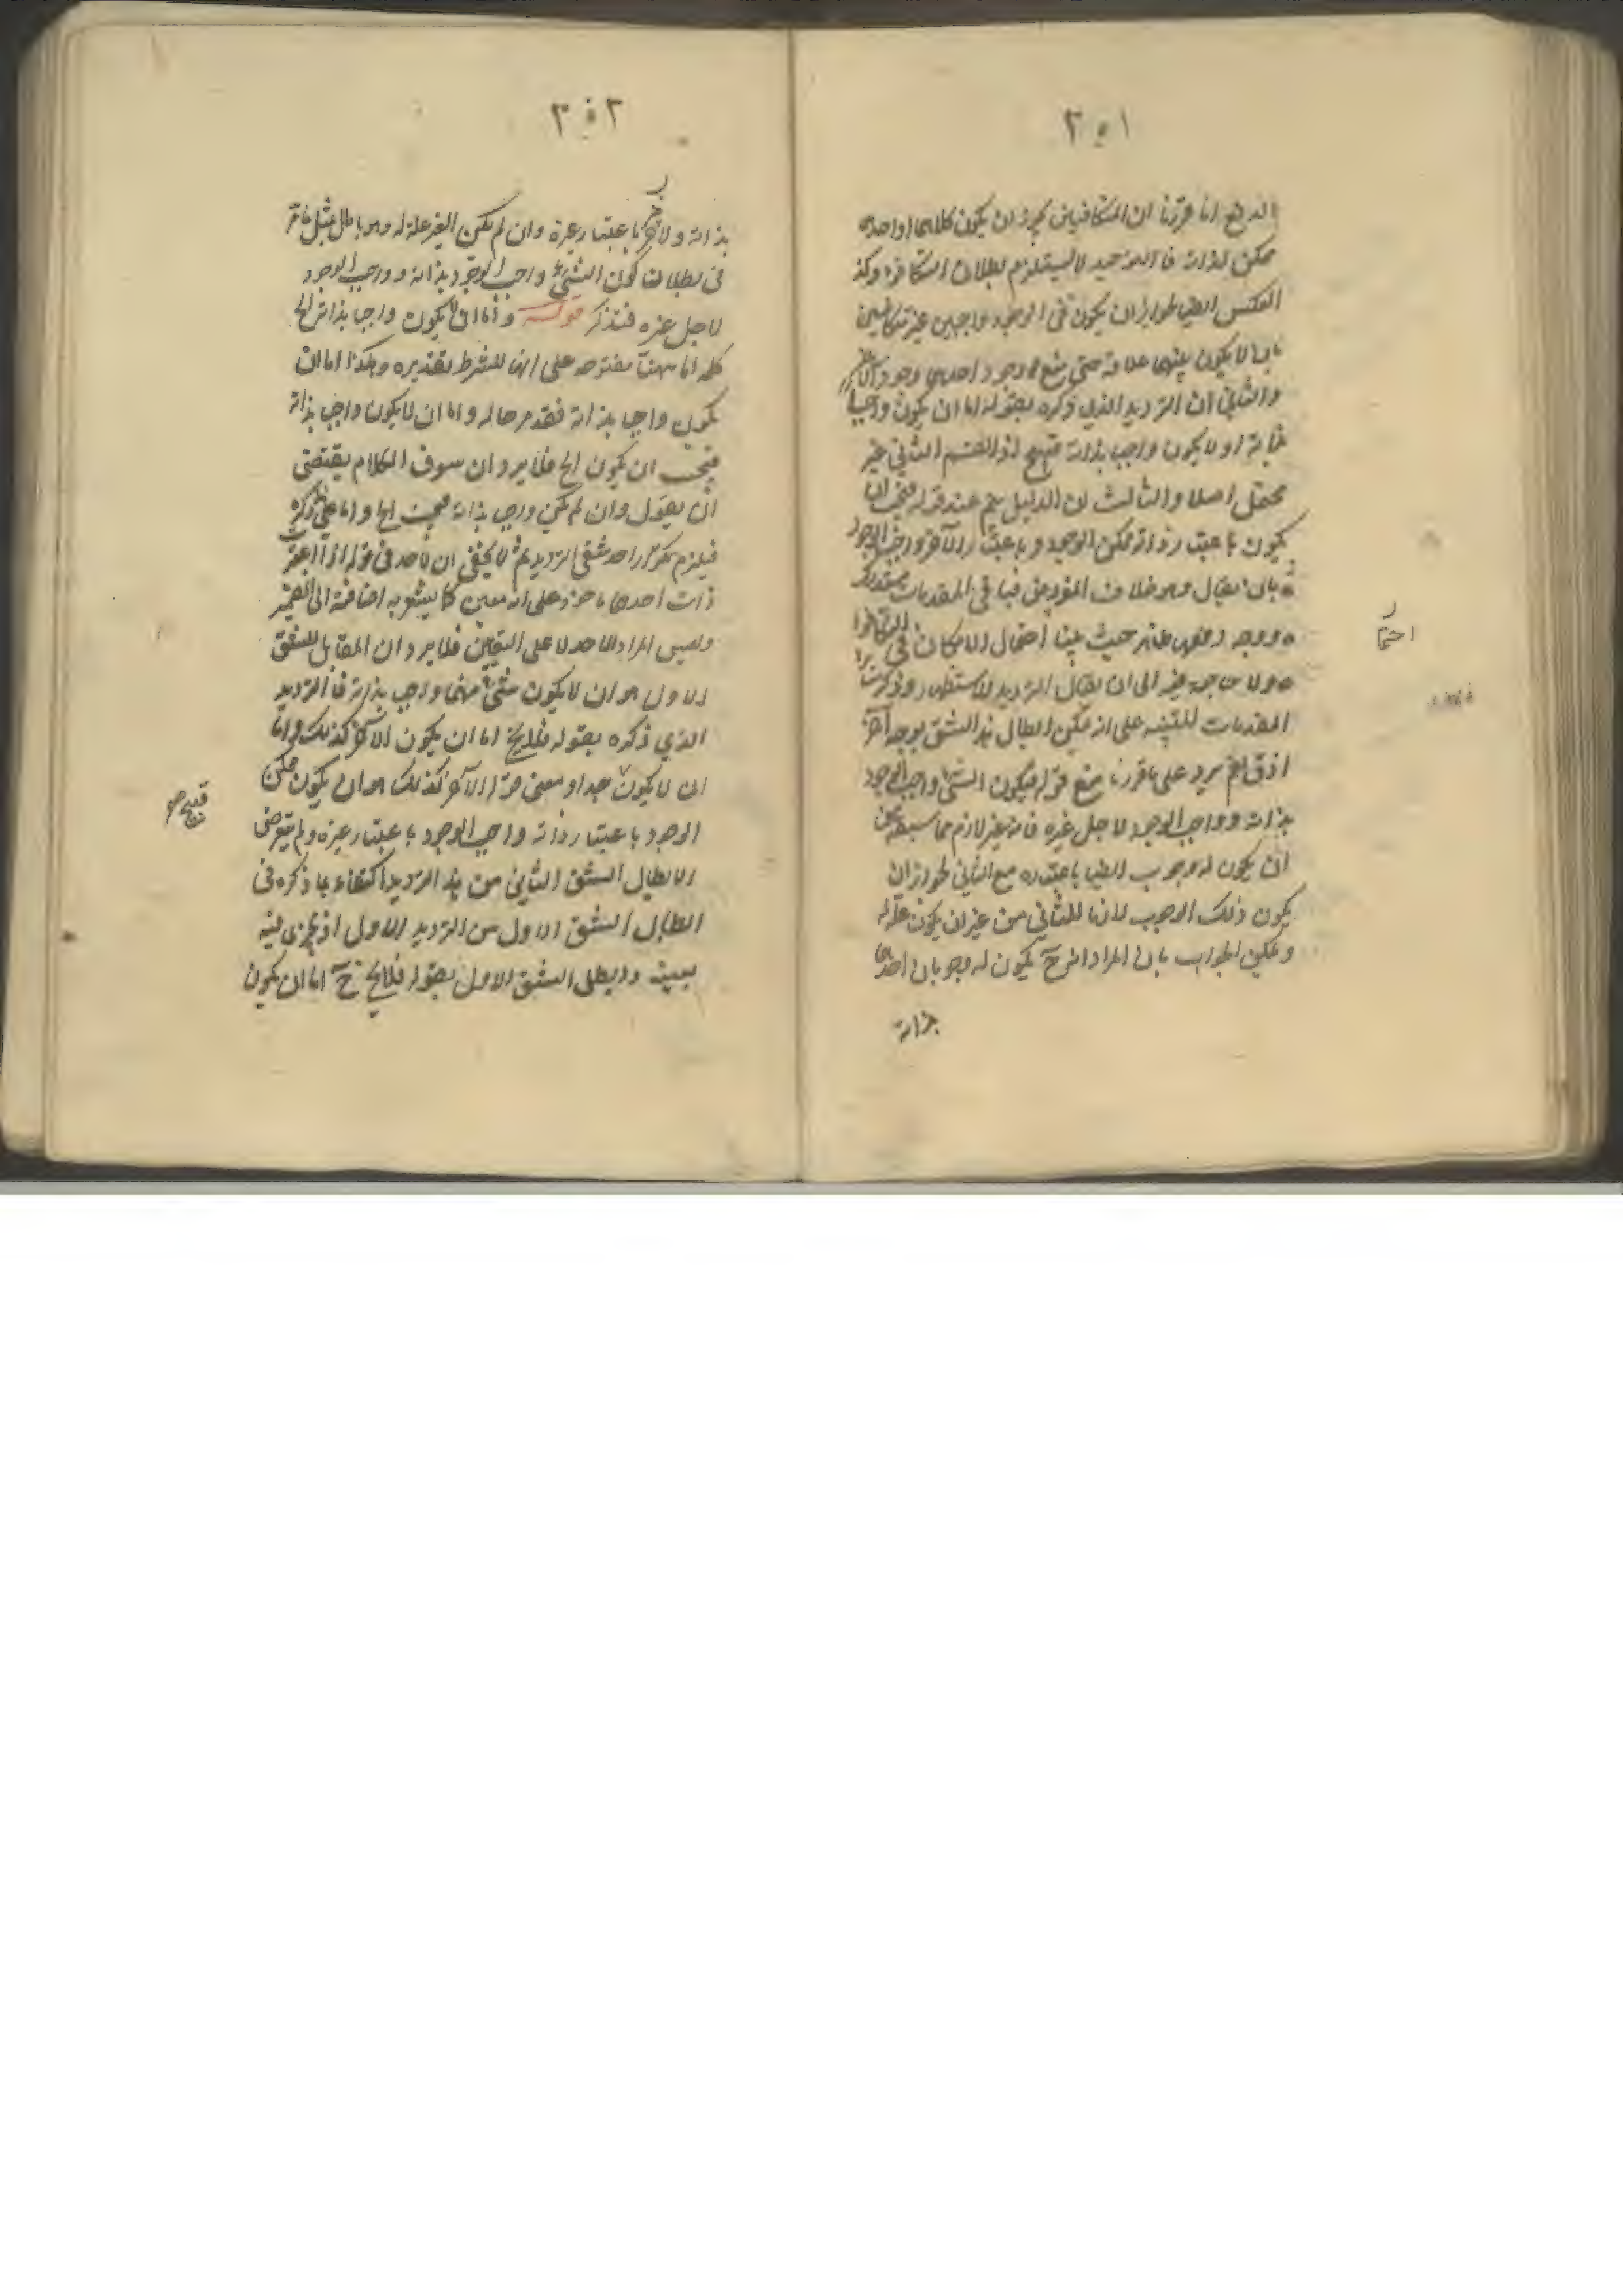 ٣٥١
الدفع انا قررنا ان المتكافيين يجوز ان يكون كلاهما او احدهما
ممكن لذاته فالتوحيد لا يستلزم بطلان التكافؤ وكذا
العكس ايضا لجواز ان يكون فى الوجود واجبين غير متكافيين
بان لا يكون بينهما علاقة حتى يمتنع وجود احدهما وجود الآخر
والثانى ان الترديد الذى ذكره بقوله اما ان يكون واجبا
بذاته او لا يكون واجب بذاته قبيح اذ القسم الثانى غير
محتمل اصلا والثالث ان الدليل يتم عند قوله فيجب ان
يكون باعتبار ذاته ممكن الوجود وباعتبار الآخر واجب الوجود
بان يقال وهو خلاف المفروض فباقى المقدمات مستدرك
ووجه دفعها ظاهر حيث بينا احتمال الامكان فى التكافؤ
ولا حاجة فيه الى ان يقال الترديد للاستظهار وذكر
المقدمات للتنبيه على انه يمكن ابطال هذا الشق بوجه آخر
احتما
اذ يرد على ما قررنا منع قوله فيكون الشئ واجب الوجود
بذاته وواجب الوجود لاجل غيره فانه غير لازم مما سبقه
ان يكون له وجوب ايضا باعتباره مع الثانى لجواز ان
يكون ذلك الوجوب لازما للثانى من غير ان يكون علة له
ويمكن الجواب بان المراد انه ح يكون له وجوبان احدهما
بذاته
٣٥٢
بذاته والآخر باعتبار غيره وان لم يكن الغير علة له وهو باطل بمثل ما مر
فى بطلان كون الشئ واجب الوجود بذاته وواجب الوجود
لاجل غيره فتذكر قوله واما ان لا يكون واجبا بذاته الخ
كلمة اما ههنا مفتوحة على انها للشرط تقديره وهكذا اما ان
يكون واجبا بذاته فقد مر حاله واما ان لا يكون واجب بذاته
فيجب ان يكون الخ فلا يرد ان سوق الكلام يقتضى
ان يقول وان لم يكن واجب بذاته فيجب الخ واما على ما ذكره
فيلزم تكرار احد شقى الترديد ثم لا يخفى ان الاحد فى قوله اذا اعتبر
ذات احدهما ماخوذ على انه معين كما يشعر به اضافته الى الضمير
وليس المراد الاحد لا على التعيين فلا يرد ان المقابل للشق
الاول هو ان لا يكون شئ منهما واجب بذاته فالترديد
الذي ذكره بقوله فلا يخ اما ان يكون الآخر كذلك واما
ان لا يكون قبيح جدا ومعنى قوله الآخر كذلك هو ان يكون ممكن
الوجود باعتبار ذاته واجب الوجود باعتبار غيره ولم يتعرض
لابطال الشق الثانى من هذا الترديد اكتفاء بما ذكره فى
ابطال الشق الاول من الترديد الاول اذ يجرى فيه
بعينه وابطل الشق الاول بقوله فلا يخ ح اما ان يكون